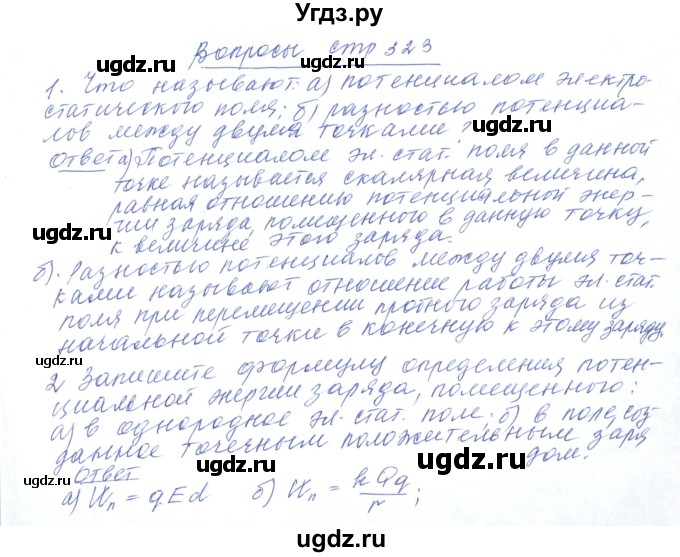 Угдз.ру
Вопросы стр 323
1. Что называют: а) потенциалом электро-
статического поля; б) разностью потенциа-
лов между двумя точками?
Ответ а) Потенциалом эл. стат. поля в данной
точке называется скалярная величина,
равная отношению потенциальной энер-
гии заряда, помещенного в данную точку,
к величине этого заряда.
б). Разностью потенциалов между двумя точ-
ками называют отношение работы эл. стат.
поля при перемещении пробного заряда из
начальной точки в конечную к этому заряду.
2 Запишите формулу определения потен-
циальной энергии заряда, помещенного:
а) в однородное эл. стат. поле; б) в поле, соз-
данное точечным положительным заря
дом.
Ответ
а) Wп = qEd б) Wп = kQq/r;
gdz.ru
gdz.ru
gdz.ru
gdz.ru
gdz.ru
gdz.ru
gdz.ru
gdz.ru
gdz.ru
gdz.ru
Угдз.ру